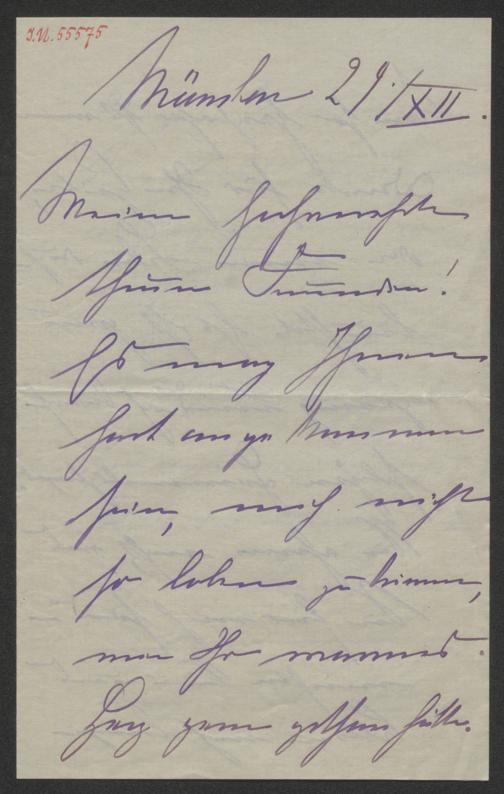 I.N. 55575
München 29./XII.
Meine hochverehrte
theure Freundin!
Es mag Ihnen
hart angekommen
sein, mich nicht
so loben zu können,
wie Ihr warmes
Herz gern gethan hätte.